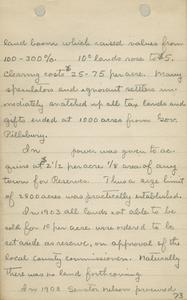 land boom which caused values from
100-300%. 10¢ lands rose to $5.
Clearing costs $25-75 per acre. Many
speculators and ignorant settlers im-
mediately snatched up all tax lands and
gifts ended at 1000 acres from Gov.
Pillsbury.
In power was given to ac-
quire at $2 1/2 per acre 1/8 area of any
town for Reserves. Thus a size limit
of 2800 acres was practically established.
In 1903 all lands not able to be
sold for 10 per acre were ordered to be
set aside as reserve, on approval of the
local County Commissioners. Naturally
there was no land forthcoming.
In 1902 Senator Nelson procured